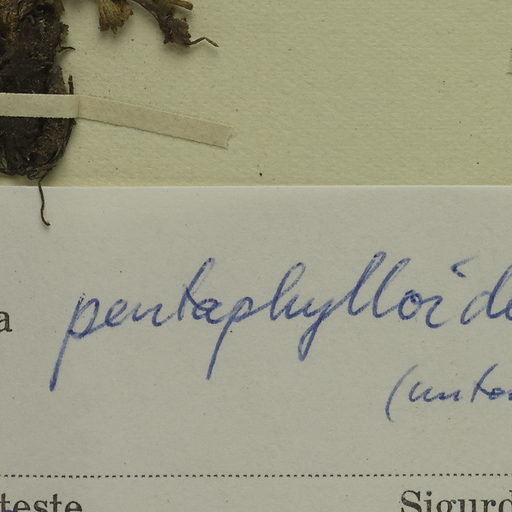 a pentaphylloïde
(unto
teste Sigurd